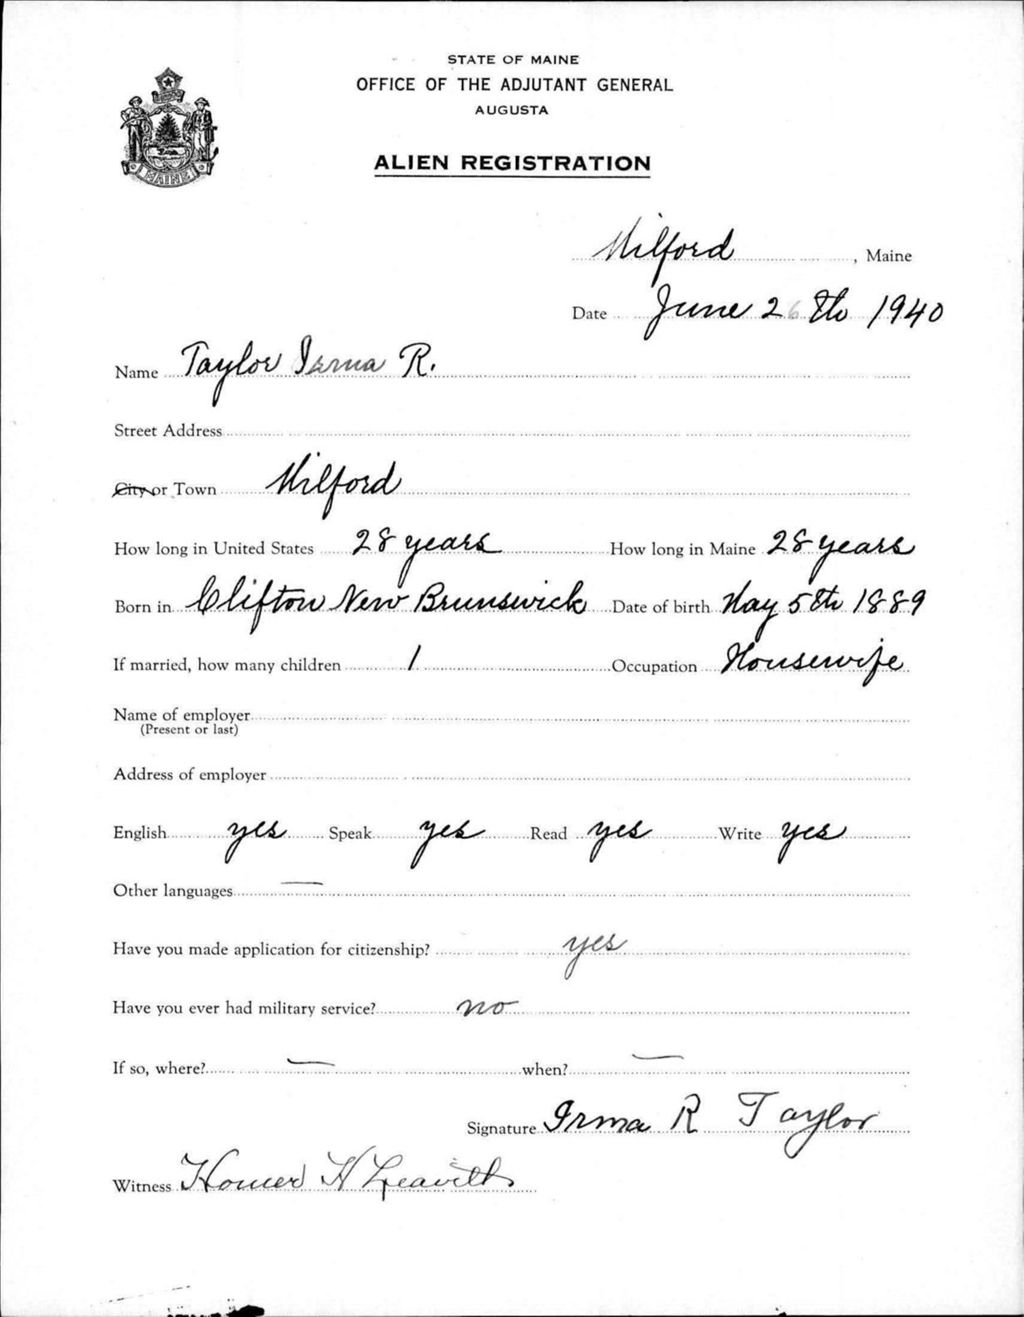 STATE OF MAINE
OFFICE OF THE ADJUTANT GENERAL
AUGUSTA
ALIEN REGISTRATION
MAINE
Milford, Maine
Date June 26th 1940
Name Taylor Irma R.
Street Address
City or Town Milford
How long in United States 28 years How long in Maine 28 years
Born in Clifton New Brunswick Date of birth May 5th 1889
If married, how many children 1 Occupation Housewife
Name of employer
(Present or last)
Address of employer
English yes Speak yes Read yes Write yes
Other languages —
Have you made application for citizenship? yes
Have you ever had military service? no
If so, where? — when? —
Signature Irma R Taylor
Witness Homer H Leavitt